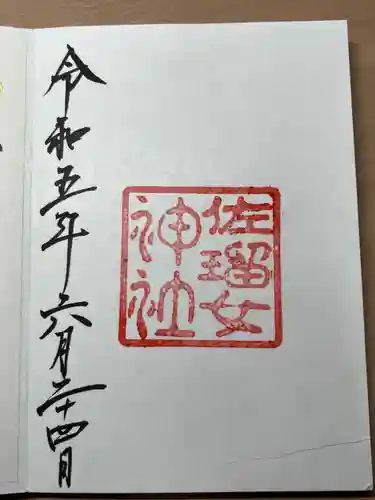 佐瑠女
神社
令和五年六月二十四日